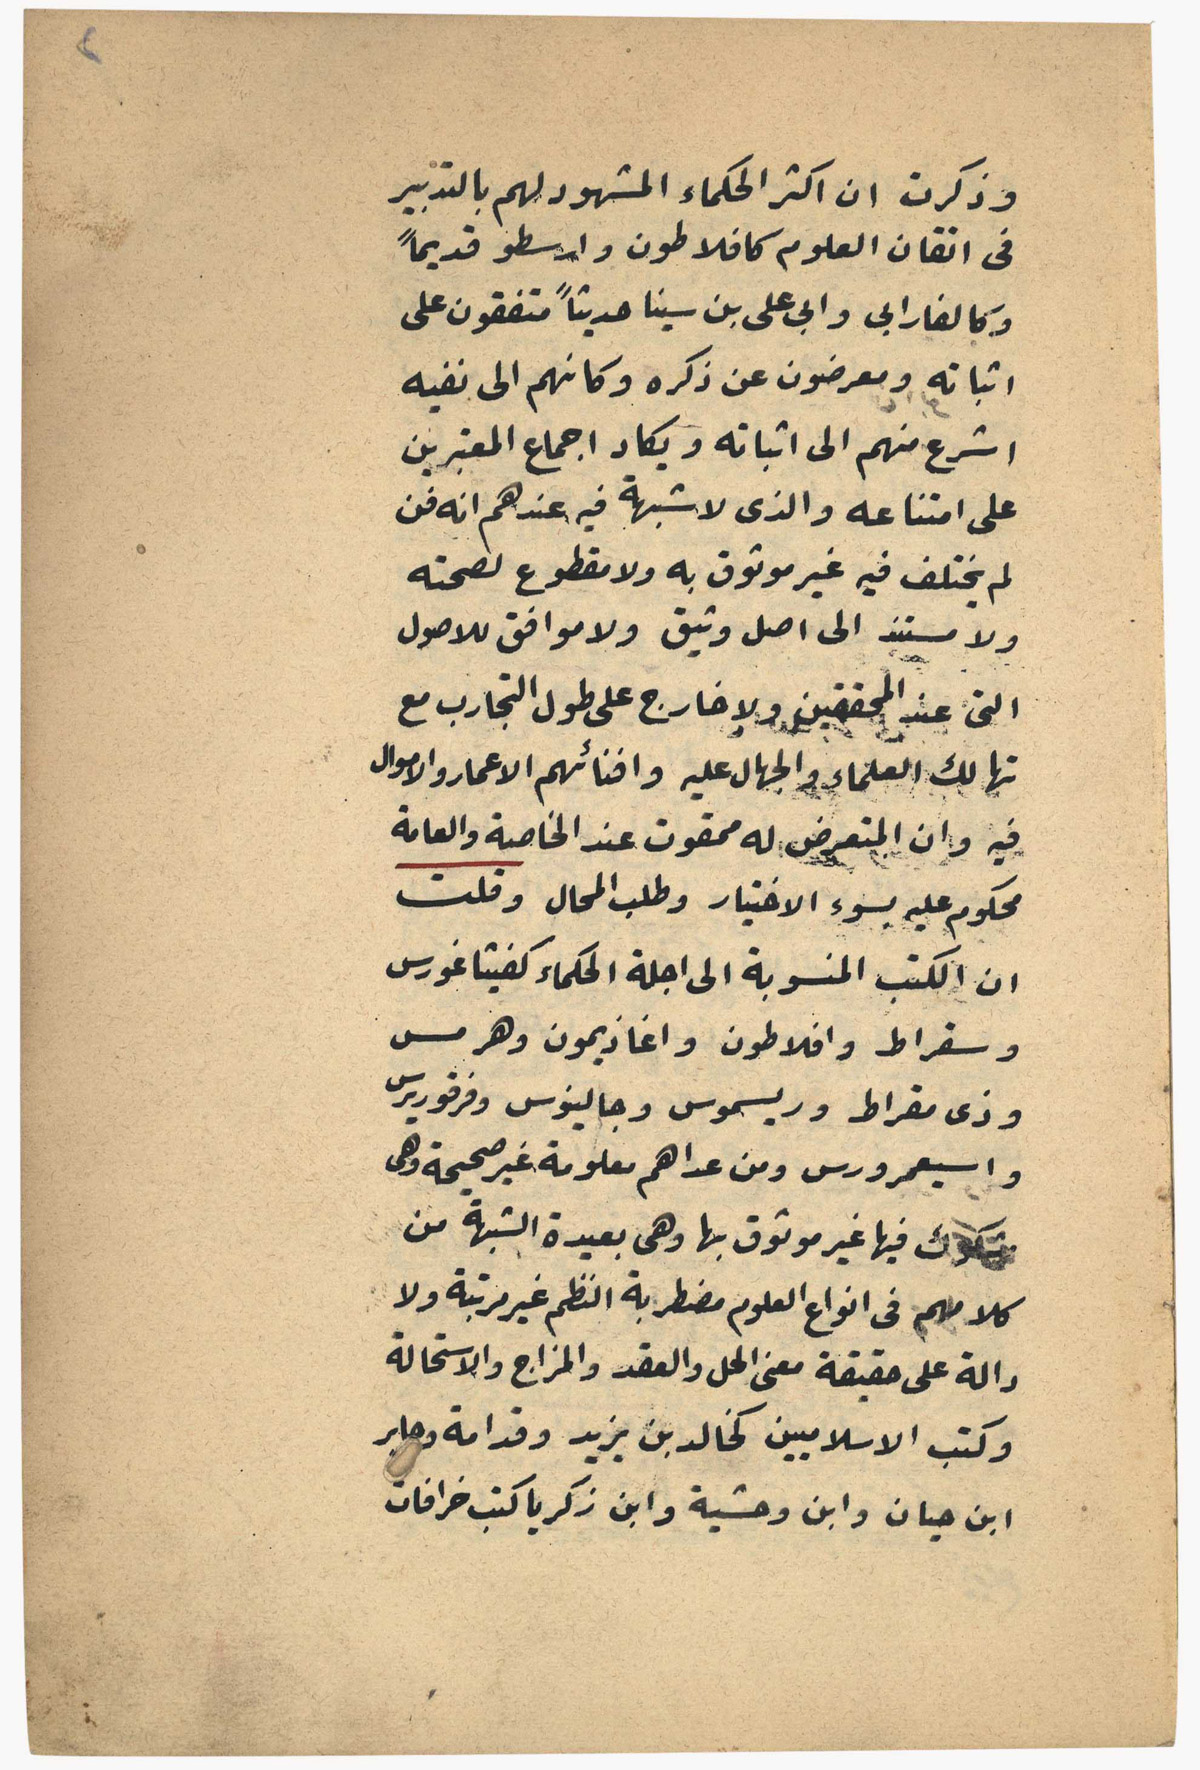 ٤
وذكرت ان اكثر الحكماء المشهود لهم بالتدبير
فى اتقان العلوم كافلاطون وارسطو قديماً
وكالفارابي وابي على بن سينا حديثاً متفقون على
اثباته ومعرضون عن ذكره وكانهم الى نفيه
اشرع منهم الى اثباته ويكاد اجماع المعتبرين
على امتناعه والذى لا شبهة فيه عندهم انه فن
لم يختلف فيه غير موثوق به ولا مقطوع لصحته
ولا مستند الى اصل وثيق ولا موافق للاصول
التى عند المحققين ولا خارج على طول التجارب مع
تهالك العلماء والجهال عليه وافنائهم الاعمار والاموال
فيه وان المتعرض له ممقوت عند الخاصة والعامة
محكوم عليه بسوء الاختيار وطلب المحال وقلت
ان الكتب المنسوبة الى اجلة الحكماء كفيثاغورس
وسقراط وافلاطون واغاذيمون وهرمس
وذى مقراط وريسموس وجالينوس وفرفوريس
واسيعمرورس ومن عداهم معلومة غير صحيحة وهى
مشكوك فيها غير موثوق بها وهى بعيدة الشبهة من
كلامهم فى انواع العلوم مضطربة النظم غير مرتبة ولا
دالة على حقيقة معنى الحل والعقد والمزاج والاستحالة
وكتب الاسلاميين كخالد بن يزيد وقدامة وجابر
ابن حيان وابن وحشية وابن زكريا كتب خرافات